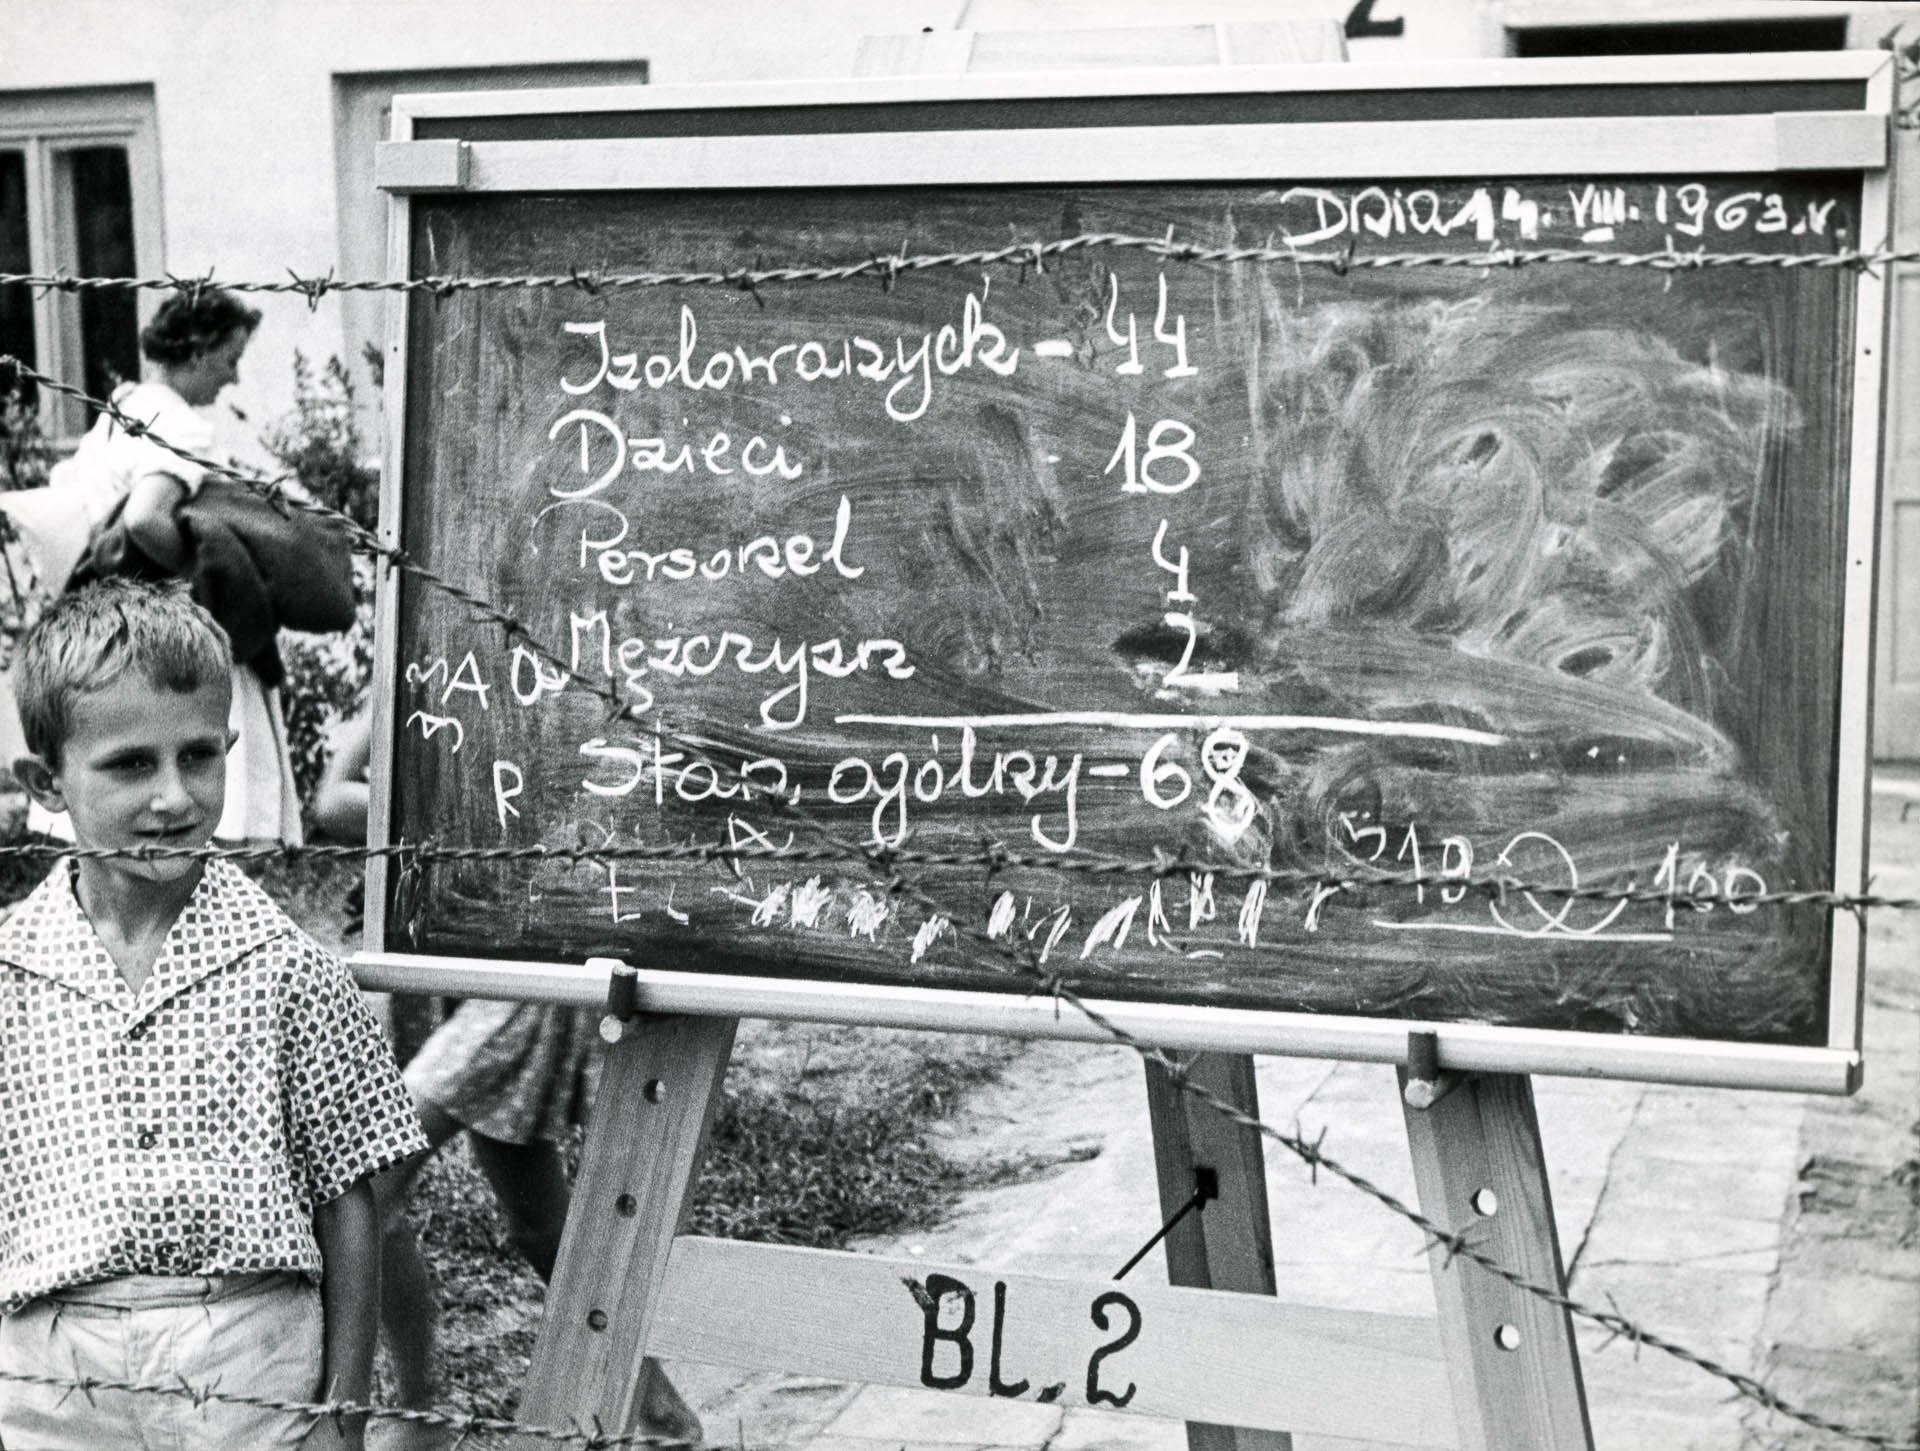 Dnia 14. VIII. 1963.r.
Izolowanych - 44
Dzieci - 18
Personel 4
Mężczyzn 2
A a
R Stan ogólny - 68
A
Ł
19 100
BL. 2
2